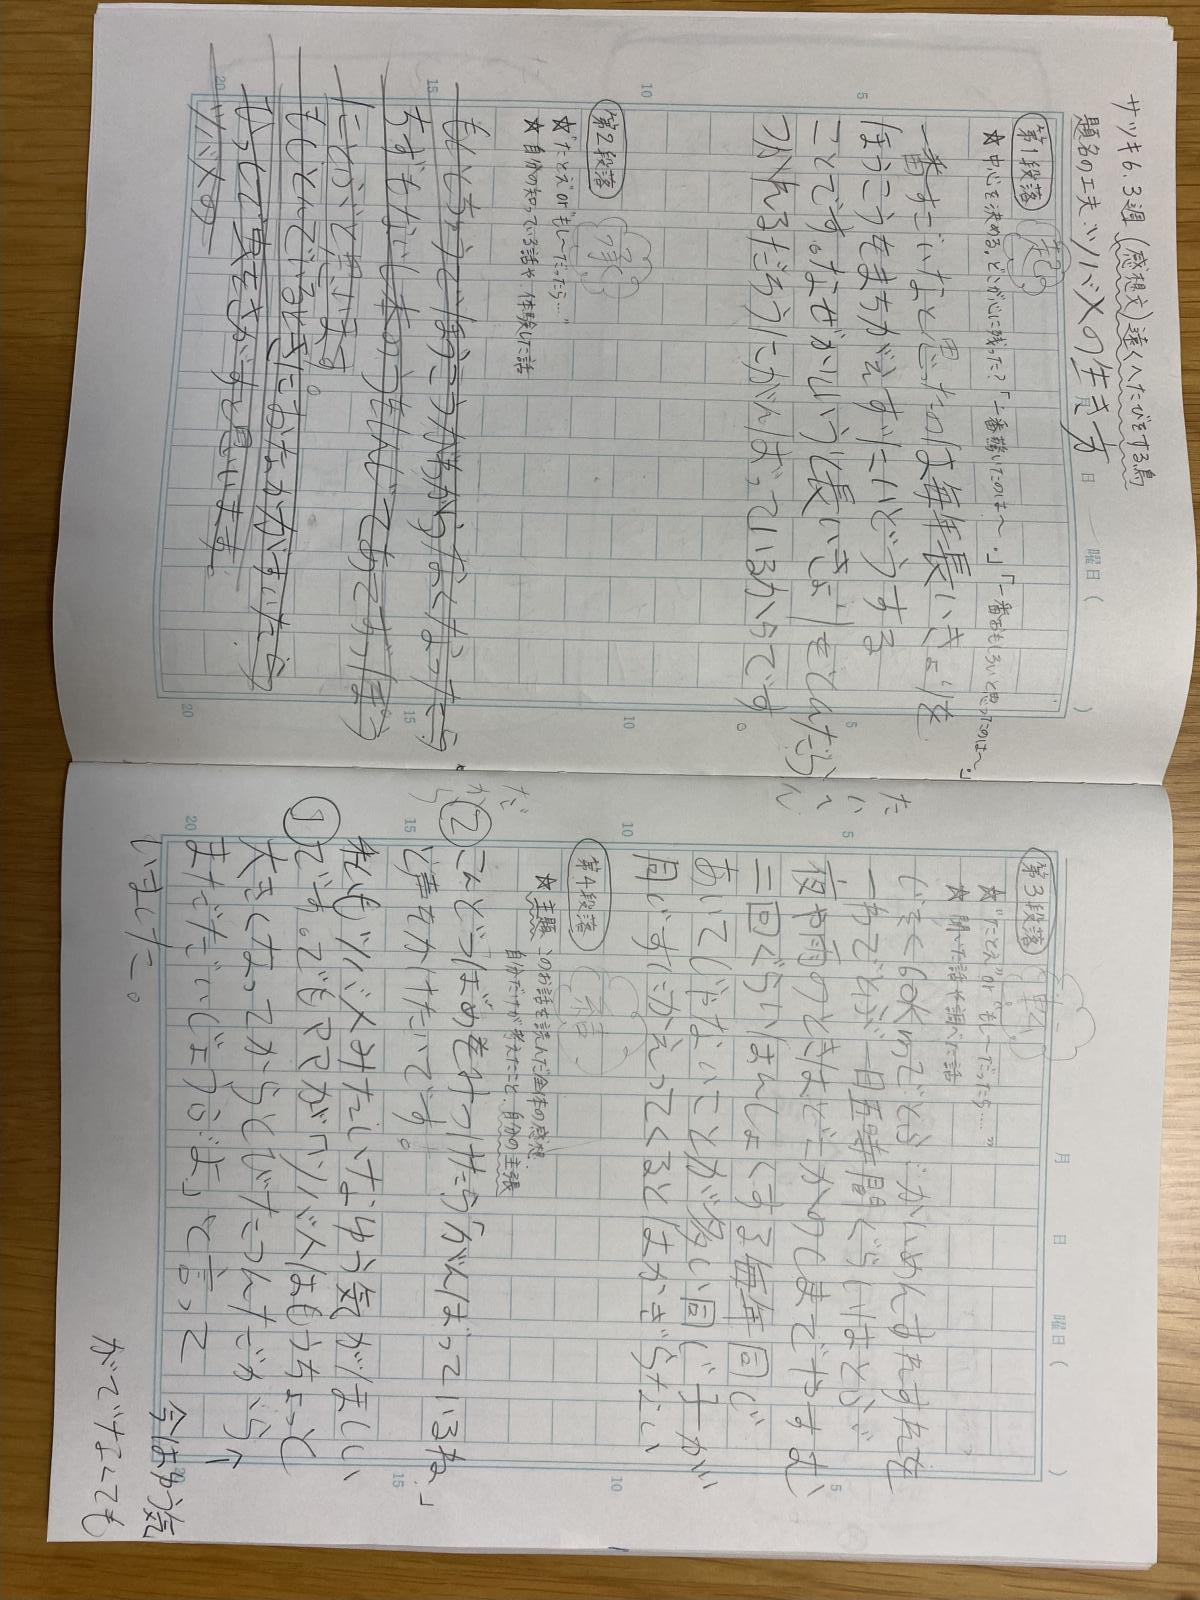 サツキ6.3週(感想文)遠くへたびをする鳥
題名の工夫 ツバメの生き方
月 日 曜日( )
第1段落
起
★中心を決める。どこが心に残った?「一番驚いたのは〜。」「一番おもしろいと思ったのは〜。」
一番すごいなと思ったのは毎年長いきょりを
ほうこうもまちがえずにいどうする
ことです。なぜかいうと長いきょりをとんだらん
つかれるだろうにがんばっているからです。
第2段落
承
★"たとえ"or"もし〜だったら…"
★自分の知っている話や体験した話
もしとちゅうでほうこうがわからなくなったら
ちずもないし
ことだと思います。
もしとんでいるときにおなかがすいたら
ひっしで実をさがすと思います。
ツバメの
月 日 曜日( )
第3段落
転
★"たとえ"or"もし〜だったら……"
★聞いた話や調べた話
じそく60kmでとぶ
一わでとぶ一日五時間ぐらいはとぶ
夜や雨のときはどこかのしまでやすむ
二回ぐらいはんしょくする毎年同じ
あいてじゃないことが多い同じ
同じすにかえってくるとはかぎらない
第4段落
結
★主題 このお話を読んだ全体の感想
自分だけが考えたこと、自分の主張
②こんどつばめを見つけたら「がんばっているね。」
と声をかけたいです。
私もツバメみたいなゆう気がほしい
①です。でもママが「
大きくなってからとびたつんだから
まだだいじょうぶよ」と言って
いました。
今はゆう気
がでなくても